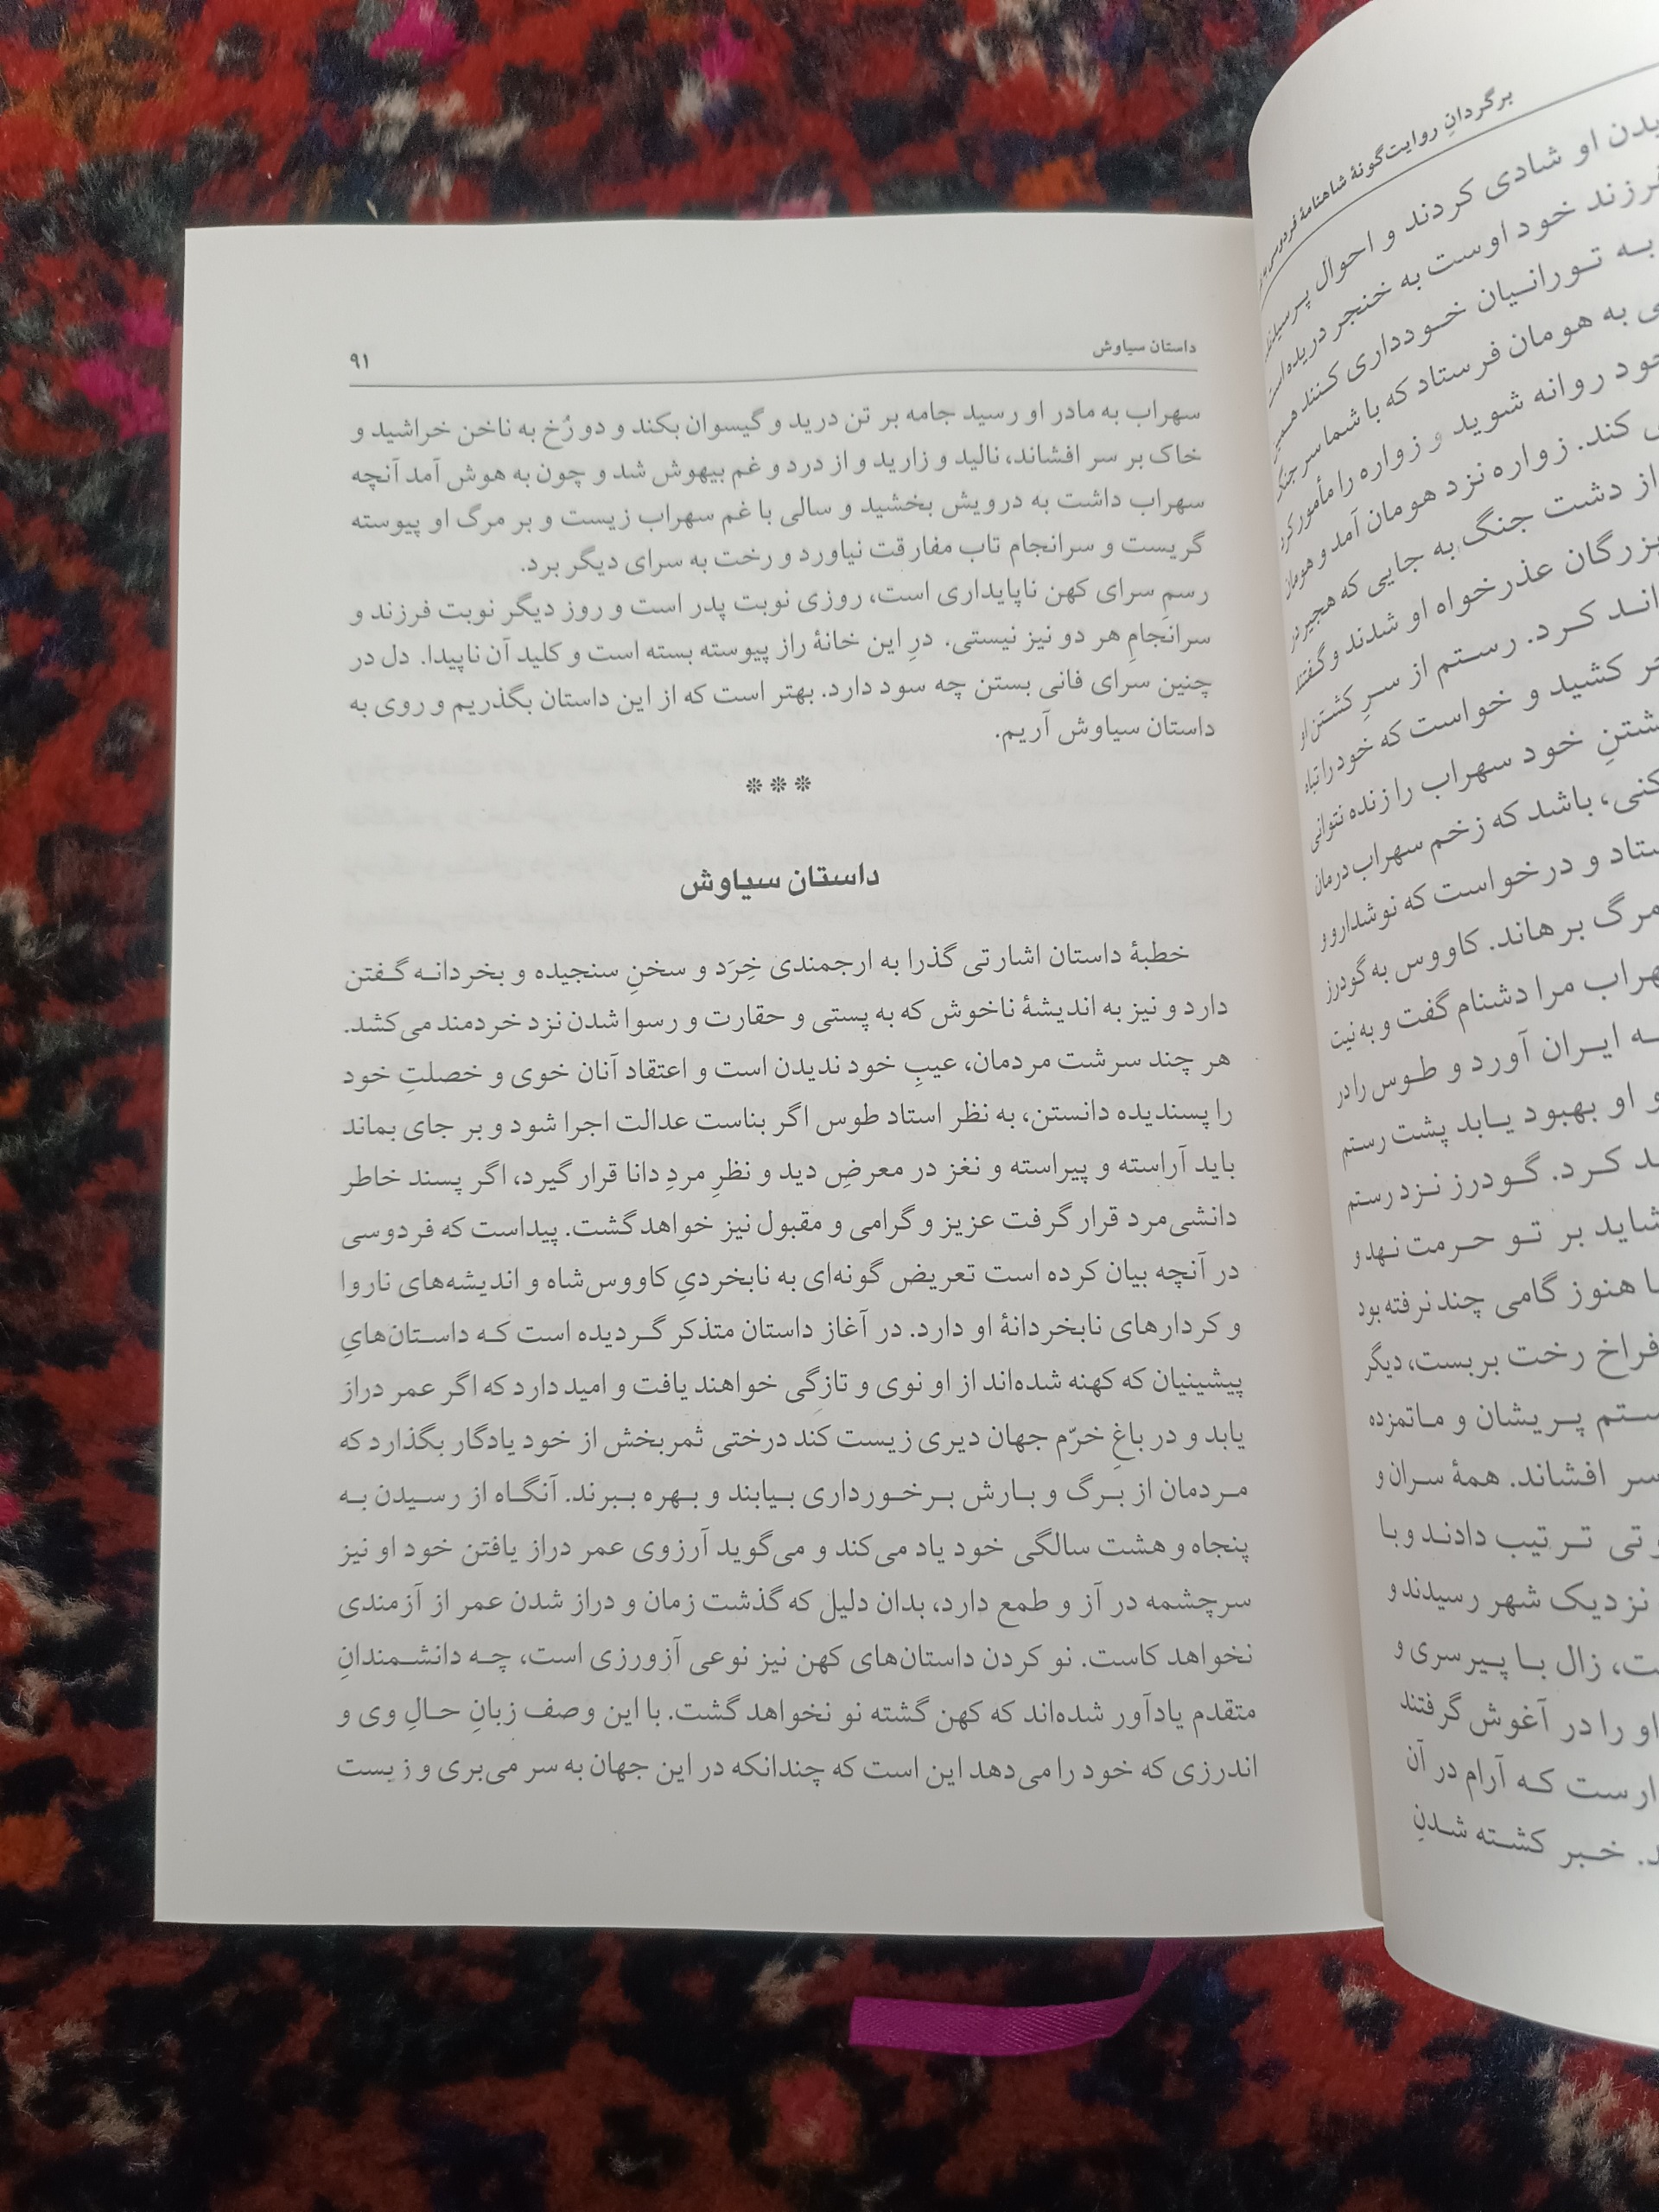 برگردانِ روایت‌گونهٔ شاهنامهٔ فردوسی
یدن او شادی کردند و احوال پرسیدند
فرزند خود اوست به خنجر دریده است
به تورانیان خودداری کنند
ی به هومان فرستاد که با شما سر جنگ
خود روانه شوید و زواره را مأمور کرد
کند. زواره نزد هومان آمد و هومان
از دشت جنگ به جایی که هجیر در
بزرگان عذرخواه او شدند و گفتند
اند کرد. رستم از سرِ کشتن او
ر کشید و خواست که خود را تباه
شتنِ خود سهراب را زنده نتوانی
کنی، باشد که زخم سهراب درمان
ستاد و درخواست که نوشدارو و
مرگ برهاند. کاووس به گودرز
هراب مرا دشنام گفت و به نیت
ه ایران آورد و طوس را در
و او بهبود یابد پشت رستم
د کرد. گودرز نزد رستم
شاید بر تو حرمت نهد و
ا هنوز گامی چند نرفته بود
فراخ رخت بربست، دیگر
ستم پریشان و ماتمزده
سر افشاند. همهٔ سران و
وتی ترتیب دادند و با
نزدیک شهر رسیدند و
ت، زال با پیرسری و
او را در آغوش گرفتند
ارست که آرام در آن
د. خبر کشته شدنِ
داستان سیاوش
۹۱
سهراب به مادر او رسید جامه بر تن درید و گیسوان بکند و دو رُخ به ناخن خراشید و
خاک بر سر افشاند، نالید و زارید و از درد و غم بیهوش شد و چون به هوش آمد آنچه
سهراب داشت به درویش بخشید و سالی با غم سهراب زیست و بر مرگ او پیوسته
گریست و سرانجام تاب مفارقت نیاورد و رخت به سرای دیگر برد.
رسمِ سرای کهن ناپایداری است، روزی نوبت پدر است و روز دیگر نوبت فرزند و
سرانجامِ هر دو نیز نیستی. درِ این خانهٔ راز پیوسته بسته است و کلید آن ناپیدا. دل در
چنین سرای فانی بستن چه سود دارد. بهتر است که از این داستان بگذریم و روی به
داستان سیاوش آریم.
***
داستان سیاوش
خطبهٔ داستان اشارتی گذرا به ارجمندی خِرَد و سخنِ سنجیده و بخردانه گفتن
دارد و نیز به اندیشهٔ ناخوش که به پستی و حقارت و رسوا شدن نزد خردمند می‌کشد.
هر چند سرشت مردمان، عیبِ خود ندیدن است و اعتقاد آنان خوی و خصلتِ خود
را پسندیده دانستن، به نظر استاد طوس اگر بناست عدالت اجرا شود و بر جای بماند
باید آراسته و پیراسته و نغز در معرضِ دید و نظرِ مردِ دانا قرار گیرد، اگر پسند خاطر
دانشی‌مرد قرار گرفت عزیز و گرامی و مقبول نیز خواهد گشت. پیداست که فردوسی
در آنچه بیان کرده است تعریض گونه‌ای به نابخردیِ کاووس‌شاه و اندیشه‌های ناروا
و کردارهای نابخردانهٔ او دارد. در آغاز داستان متذکر گردیده است که داستان‌هایِ
پیشینیان که کهنه شده‌اند از او نوی و تازگی خواهند یافت و امید دارد که اگر عمر دراز
یابد و در باغِ خرّم جهان دیری زیست کند درختی ثمربخش از خود یادگار بگذارد که
مردمان از برگ و بارش برخورداری بیابند و بهره ببرند. آنگاه از رسیدن به
پنجاه و هشت سالگی خود یاد می‌کند و می‌گوید آرزوی عمر دراز یافتن خود او نیز
سرچشمه در آز و طمع دارد، بدان دلیل که گذشت زمان و دراز شدن عمر از آزمندی
نخواهد کاست. نو کردن داستان‌های کهن نیز نوعی آزورزی است، چه دانشمندانِ
متقدم یادآور شده‌اند که کهن گشته نو نخواهد گشت. با این وصف زبانِ حالِ وی و
اندرزی که خود را می‌دهد این است که چندانکه در این جهان به سر می‌بری و زیست